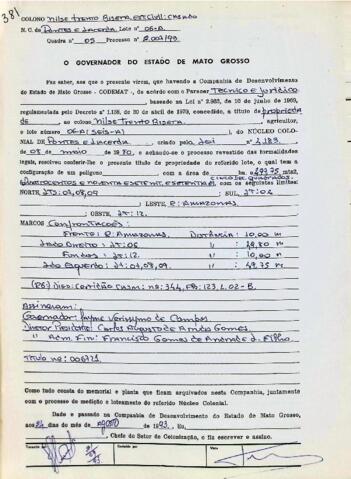 381
COLONO Nilse Trento Bisera Est. Civil: CASADO
N. C. de Pontes e Lacerda Lote nº 06-A
Quadra nº 05 Processo nº
O GOVERNADOR DO ESTADO DE MATO GROSSO
Faz saber, aos que o presente virem, que havendo a Companhia de Desenvolvimento
do Estado de Mato Grosso - CODEMAT -, de acordo com o Parecer Técnico e Jurídico
baseado na Lei nº 2.983, de 10 de junho de 1969,
regulamentada pelo Decreto nº 1.138, de 30 de abril de 1970, concedido, a título de propriedade
de Nilse Trento Bisera, agricultor,
o lote número 06-A (SEIS-A), do NÚCLEO COLO-
NIAL DE Pontes e Lacerda, criado pelo Lei nº 2.183
de 08 de maio de , e achando-se o processo revestido das formalidades
legais, resolveu conferir-lhe o presente título de propriedade do referido lote, o qual tem a
configuração de um polígono com a área de mts2,
com os seguintes limites:
NORTE LT: 07,08,09 SUL LT: 06
LESTE, R: AMAZONAS
OESTE, LT: 12
MARCOS Confrontações:
Frente: R: AMAZONAS Distância: 10,00 m
Lado Direito: LT: 06 " :
Fundos: LT: 12 " : 10,00 m
Lado Esquerdo: LT: 07,08,09 " : 49,75 m
Assinaram:
Governador: Jayme Verissimo de Campos
Diretor Presidente: Carlos Augusto de Arruda Gomes
" Adm. Fin: Francisco Gomes de Andrade L. Filho
Título nº: 006721
Como tudo consta do memorial e planta que ficam arquivados nesta Companhia, juntamente
com o processo de medição e loteamento do referido Núcleo Colonial.
Dado e passado na Companhia de Desenvolvimento do Estado de Mato Grosso,
aos 24 dias do mês de agosto de 1993.
Chefe do Setor de Colonização, o fiz escrever e assino.